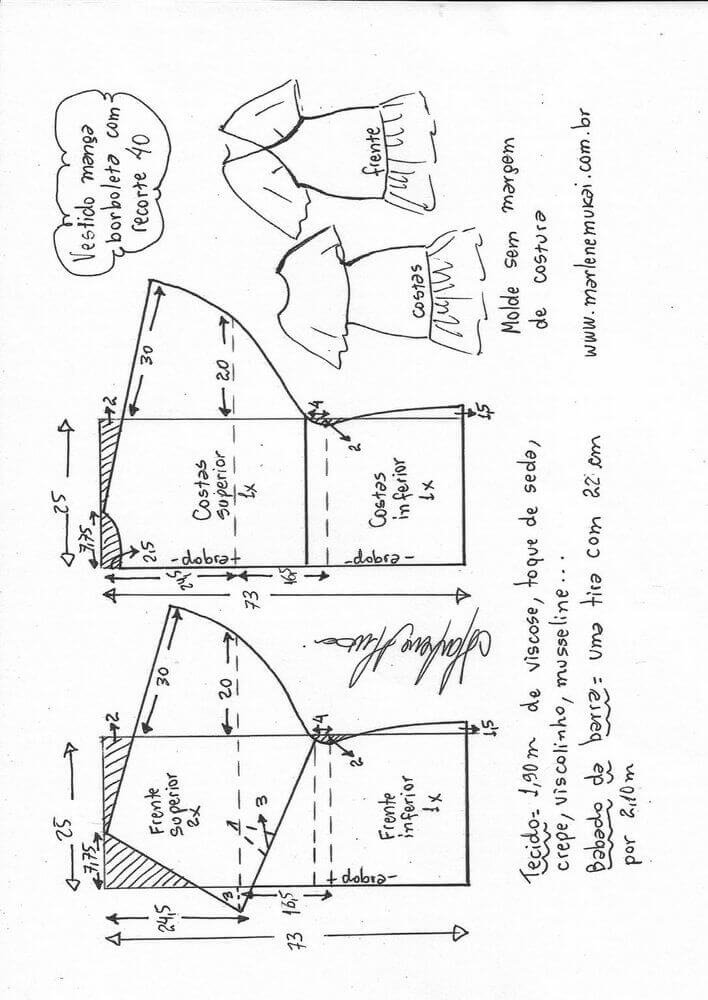 Vestido manga
borboleta com
recorte 40
frente
costas
Molde sem margem
de costura
www.marlenemukai.com.br
25
7,75
2
30
20
2,5
Costas
superior
1x
-dobra-
24,5
16,5
73
4
2
Costas
inferior
1x
-dobra-
1,5
25
7,75
2
30
20
Frente
superior
2x
3
3
24,5
16,5
73
4
2
Frente
inferior
1x
-dobra-
1,5
Tecido= 1,90m de viscose, toque de seda,
crepe, viscolinho, musseline...
Babado da barra= uma tira com 22 cm
por 2,10m